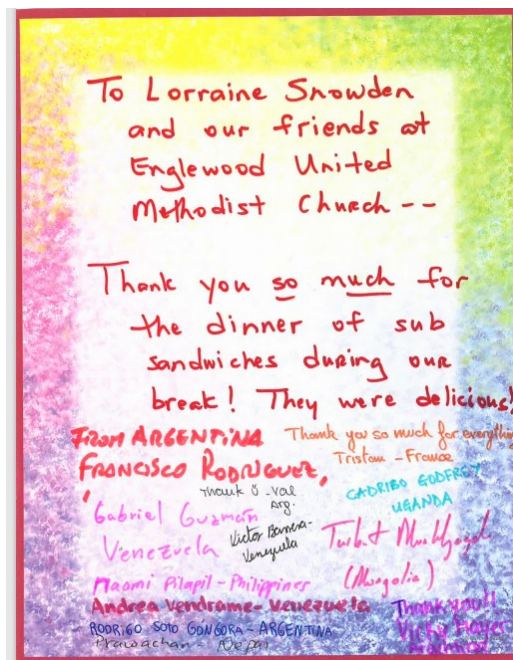 To Lorraine Snowden
and our friends at
Englewood United
Methodist Church --
Thank you so much for
the dinner of sub
sandwiches during our
break! They were delicious!
FROM ARGENTINA
FRANCISCO RODRIGUEZ,
Thank you so much for everything
Tristan - France
Thank U - Val
Arg.
CADRIBO GODFREY
UGANDA
Gabriel Guzmán
Venezuela
Victor Barrera-
Venezuela
(Mongolia)
Naomi Pilapil - Philippines
Andrea Vendrame - Venezuela
RODRIGO SOTO GÓNGORA - ARGENTINA
Prawachan - Nepal
Thank you!!
Vicky
Argentina